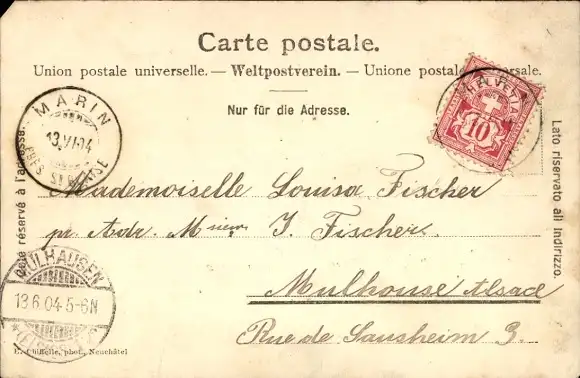 Carte postale.
Union postale universelle. — Weltpostverein. — Unione postale universale.
Nur für die Adresse.
HELVETIA
10
MARIN
13.VI.04
Côté réservé à l'adresse.
Lato riservato all indirizzo.
Mademoiselle Louisa Fischer
pr. Adr. M J. Fischer
Mulhouse Alsace
Rue de Sausheim 3.
MÜLHAUSEN
13.6.04.5-6N
E. Chiffelle, phot., Neuchâtel